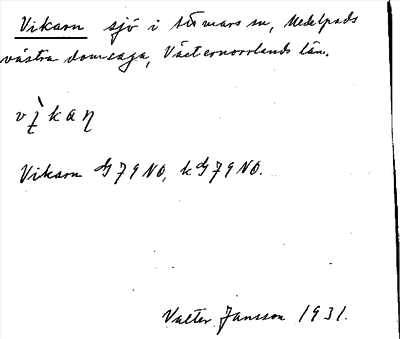 Vikarn sjö i Stuvars sn, Medelpads
västra domsaga, Västernorrlands län.
vìkaŋ
Vikarn G79NO, kG79NO.
Valter Jansson 1931.